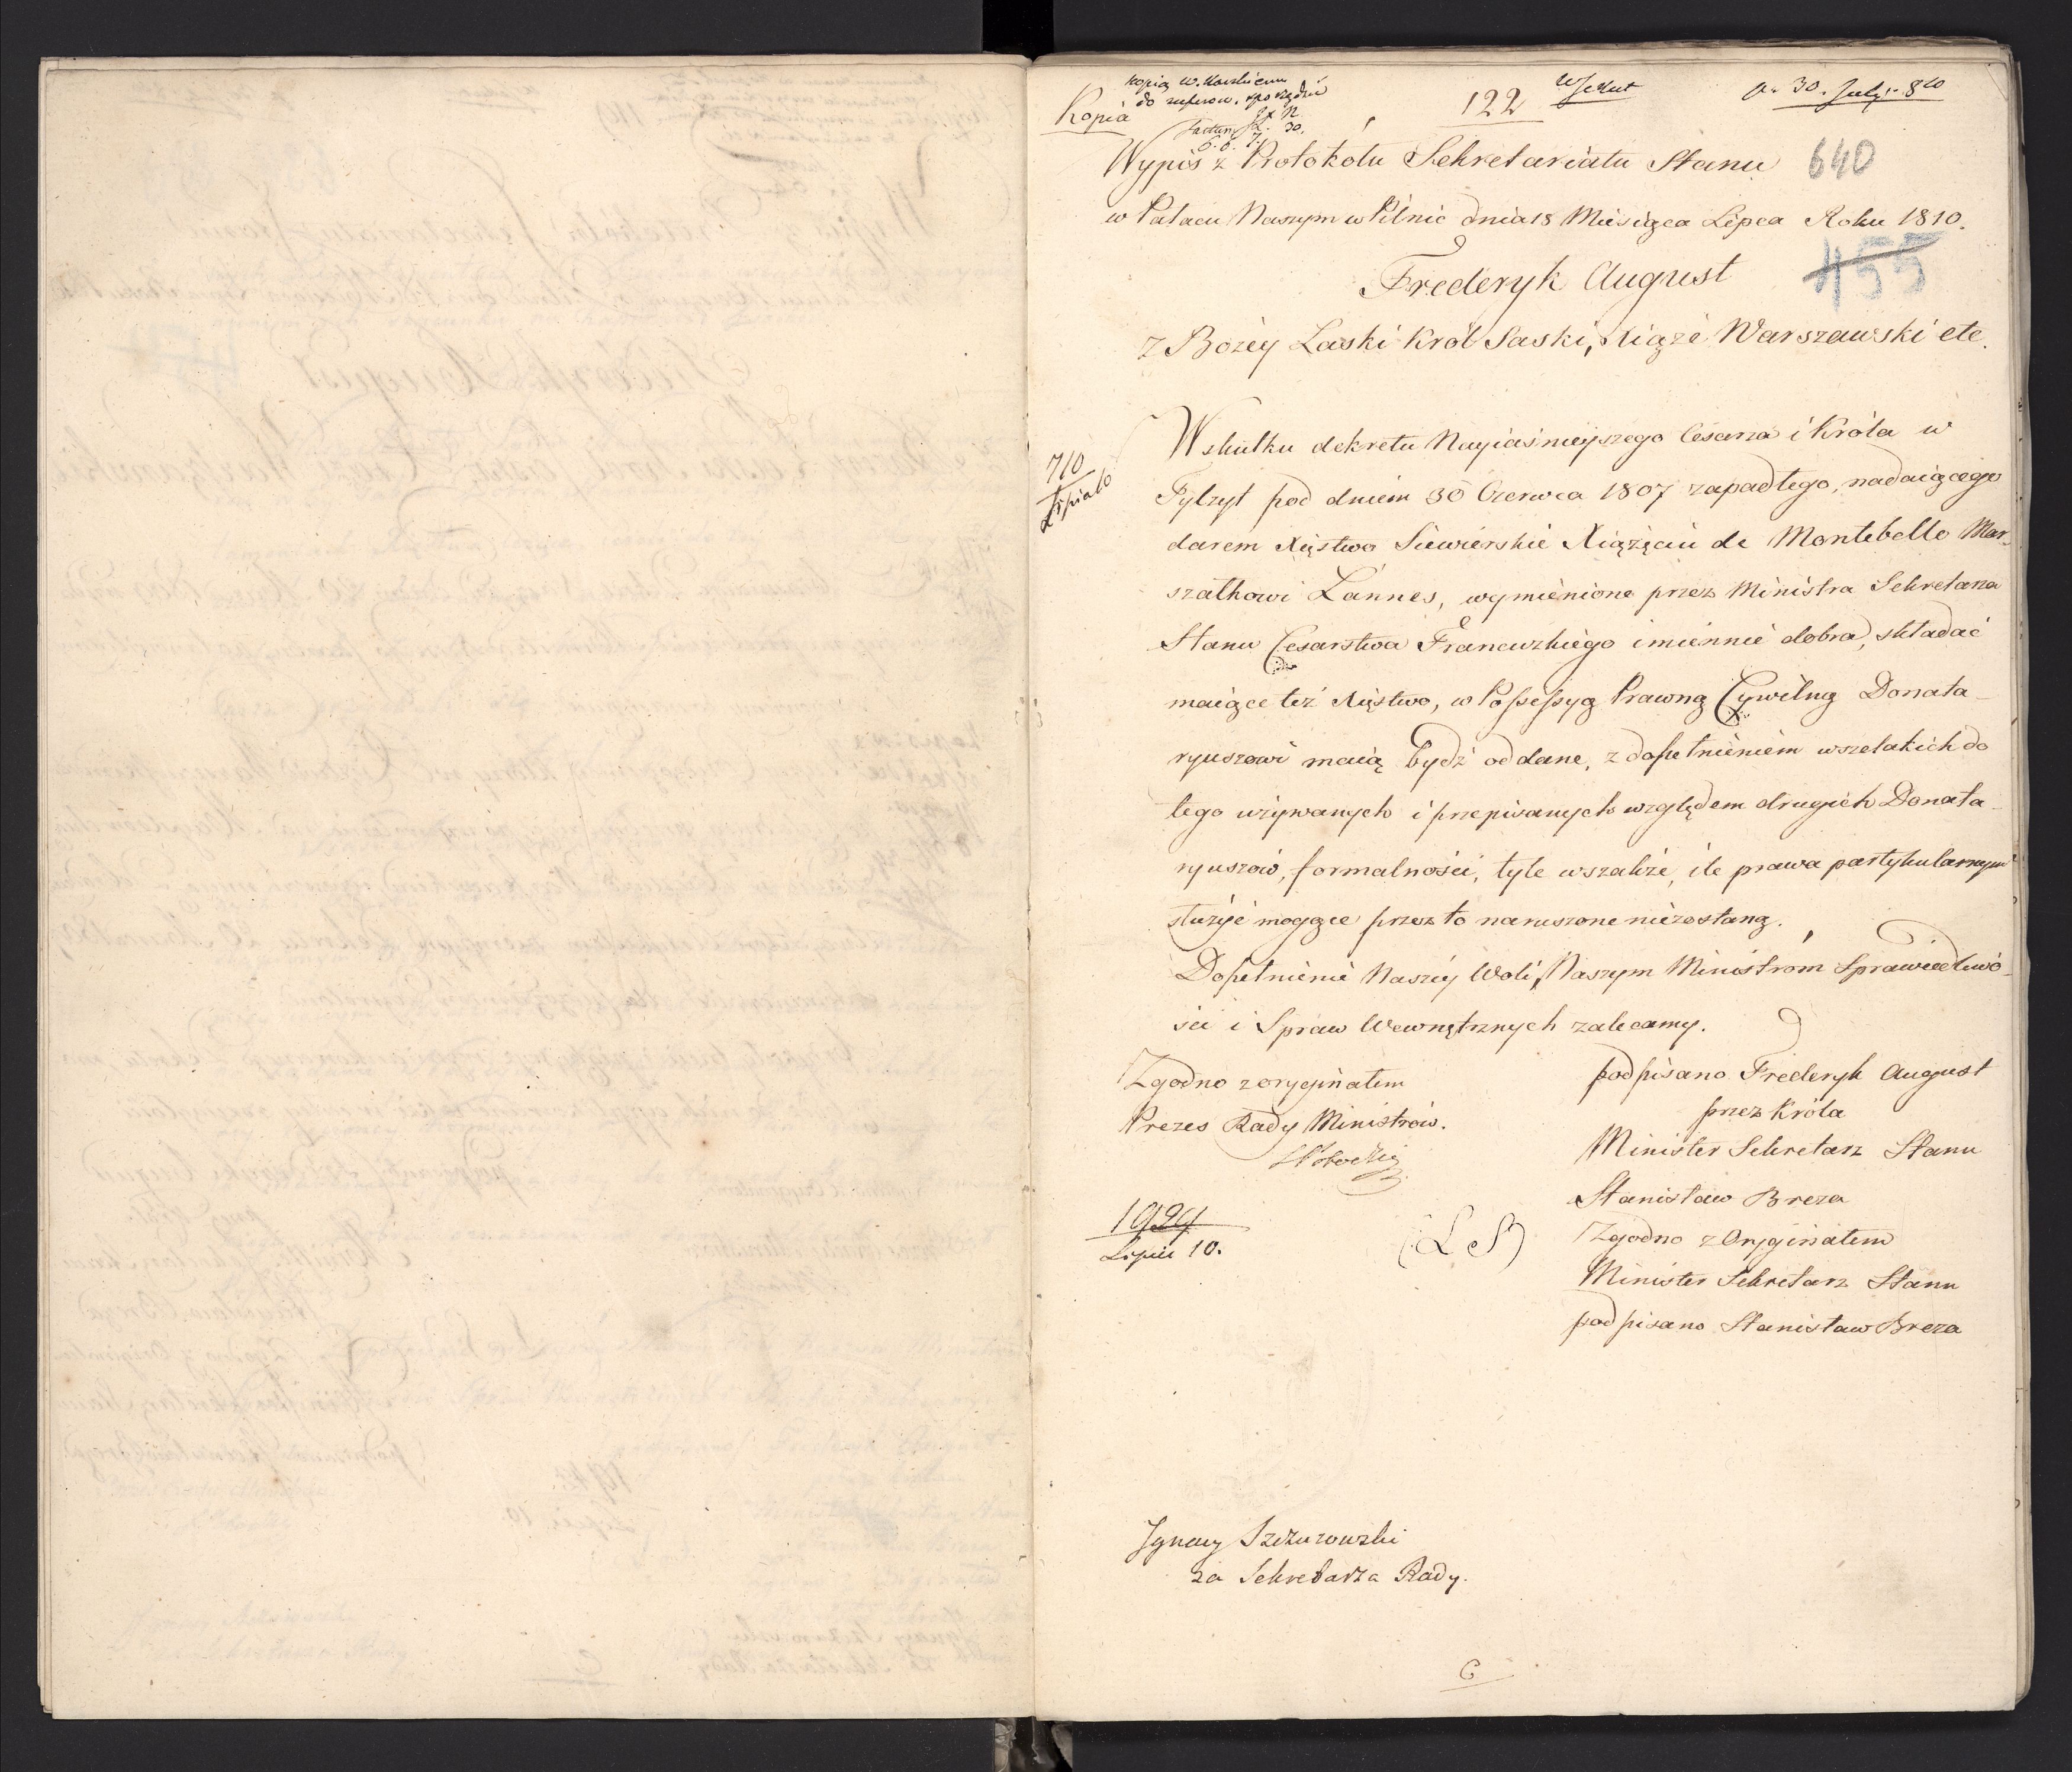 Kopia
kopią W.
do
122
30. July. 810
Wypis z Protokołu Sekretariatu Stanu
640
w Pałacu Naszym w Pilnic dnia 18 Miesiąca Lipca Roku 1810.
Frederyk August
455
z Bożey Łaski Król Saski, Xiążę Warszawski etc.
710
W skutku dekretu Nayiaśnieyszego Cesarza i Króla w
Tylzyt pod dniem 30 Czerwca 1807 zapadłego, nadaiącego
darem Xięstwo Siewierskie Xiążęciu de Montebello Mar-
szałkowi Lannes, wymienione przez Ministra Sekretarza
Stanu Cesarstwa Francuzkiego imiennie dobra, składać
maiące też Xięstwo, w Possessyą Prawną Cywilną Donata-
ryuszowi maią bydź oddane, z dopełnieniem wszelakich do
tego używanych i przepisanych względem drugich Donata-
ryuszów, formalności, tyle wszakże, ile prawa partykularnym
służyć mogące przez to naruszone niezostaną.
Dopełnienie Naszéy Woli, Naszym Ministrom Sprawiedliwo-
ści i Spraw Wewnętrznych zalecamy.
Zgodno z oryginałem
Prezes Rady Ministrów.
podpisano Frederyk August
przez Króla
Minister Sekretarz Stanu
Stanisław Breza
1929
Lipiec 10.
(L S)
Zgodno z Oryginałem
Minister Sekretarz Stanu
podpisano Stanisław Breza
Ignacy Szczurowski
za Sekretarza Rady.